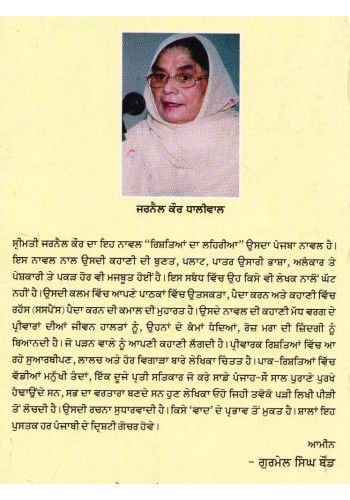 ਜਰਨੈਲ ਕੌਰ ਧਾਲੀਵਾਲ
ਸ੍ਰੀਮਤੀ ਜਰਨੈਲ ਕੌਰ ਦਾ ਇਹ ਨਾਵਲ “ਰਿਸ਼ਤਿਆਂ ਦਾ ਲਹਿਰੀਆ” ਉਸਦਾ ਪੰਜਬਾ ਨਾਵਲ ਹੈ।
ਇਸ ਨਾਵਲ ਨਾਲ ਉਸਦੀ ਕਹਾਣੀ ਦੀ ਬੁਣਤ, ਪਲਾਟ, ਪਾਤਰ ਉਸਾਰੀ ਭਾਸ਼ਾ, ਅਲੰਕਾਰ ਤੇ
ਪੇਸ਼ਕਾਰੀ ਤੇ ਪਕੜ ਹੋਰ ਵੀ ਮਜਬੂਤ ਹੋਈ ਹੈ। ਇਸ ਸਬੰਧ ਵਿੱਚ ਉਹ ਕਿਸੇ ਵੀ ਲੇਖਕ ਨਾਲੋਂ ਘੱਟ
ਨਹੀਂ ਹੈ। ਉਸਦੀ ਕਲਮ ਵਿੱਚ ਆਪਣੇ ਪਾਠਕਾਂ ਵਿੱਚ ਉਤਸਕਤਾ, ਪੈਦਾ ਕਰਨ ਅਤੇ ਕਹਾਣੀ ਵਿੱਚ
ਰਹੱਸ (ਸਸਪੈਂਸ) ਪੈਦਾ ਕਰਨ ਦੀ ਕਮਾਲ ਦੀ ਮੁਹਾਰਤ ਹੈ। ਉਸਦੇ ਨਾਵਲ ਦੀ ਕਹਾਣੀ ਮੱਧ ਵਰਗ ਦੇ
ਪ੍ਰੀਵਾਰਾਂ ਦੀਆਂ ਜੀਵਨ ਹਾਲਤਾਂ ਨੂੰ, ਉਹਨਾਂ ਦੇ ਕੰਮਾਂ ਧੰਦਿਆਂ, ਰੋਜ਼ ਮਰਾ ਦੀ ਜ਼ਿੰਦਗੀ ਨੂੰ
ਬਿਆਨਦੀ ਹੈ। ਜੋ ਪੜਨ ਵਾਲੇ ਨੂੰ ਆਪਣੀ ਕਹਾਣੀ ਲੱਗਦੀ ਹੈ। ਪ੍ਰੀਵਾਰਕ ਰਿਸ਼ਤਿਆਂ ਵਿੱਚ ਆ
ਰਹੇ ਸੁਆਰਥੀਪਣ, ਲਾਲਚ ਅਤੇ ਹੋਰ ਵਿਗਾੜਾ ਬਾਰੇ ਲੇਖਿਕਾ ਚਿੰਤਤ ਹੈ। ਪਾਕ-ਰਿਸ਼ਤਿਆਂ ਵਿੱਚ
ਵੱਡੀਆਂ ਮਨੁੱਖੀ ਤੰਦਾਂ, ਇੱਕ ਦੂਜੇ ਪ੍ਰਤੀ ਸਤਿਕਾਰ ਜੋ ਕਰੇ ਸਾਡੇ ਪੰਜਾਹ-ਸੌ ਸਾਲ ਪੁਰਾਣੇ ਪੁਰਖੇ
ਹੰਢਾਉਂਦੇ ਸਨ, ਸਭ ਦਾ ਵਰਤਾਰਾ ਬਣਦੇ ਸਨ ਹੁਣ ਲੇਖਿਕਾ ਓਹੋ ਜਿਹੀ ਤਵੱਕੋ ਪੜੀ ਲਿਖੀ ਪੀੜੀ
ਤੋਂ ਲੋਚਦੀ ਹੈ। ਉਸਦੀ ਰਚਨਾ ਸੁਧਾਰਵਾਦੀ ਹੈ। ਕਿਸੇ ‘ਵਾਦ’ ਦੇ ਪ੍ਰਭਾਵ ਤੋਂ ਮੁਕਤ ਹੈ। ਸ਼ਾਲਾਂ ਇਹ
ਪੁਸਤਕ ਹਰ ਪੰਜਾਬੀ ਦੇ ਦ੍ਰਿਸ਼ਟੀ ਗੋਚਰ ਹੋਵੇ।
ਆਮੀਨ
- ਗੁਰਮੇਲ ਸਿੰਘ ਬੌਂਡ